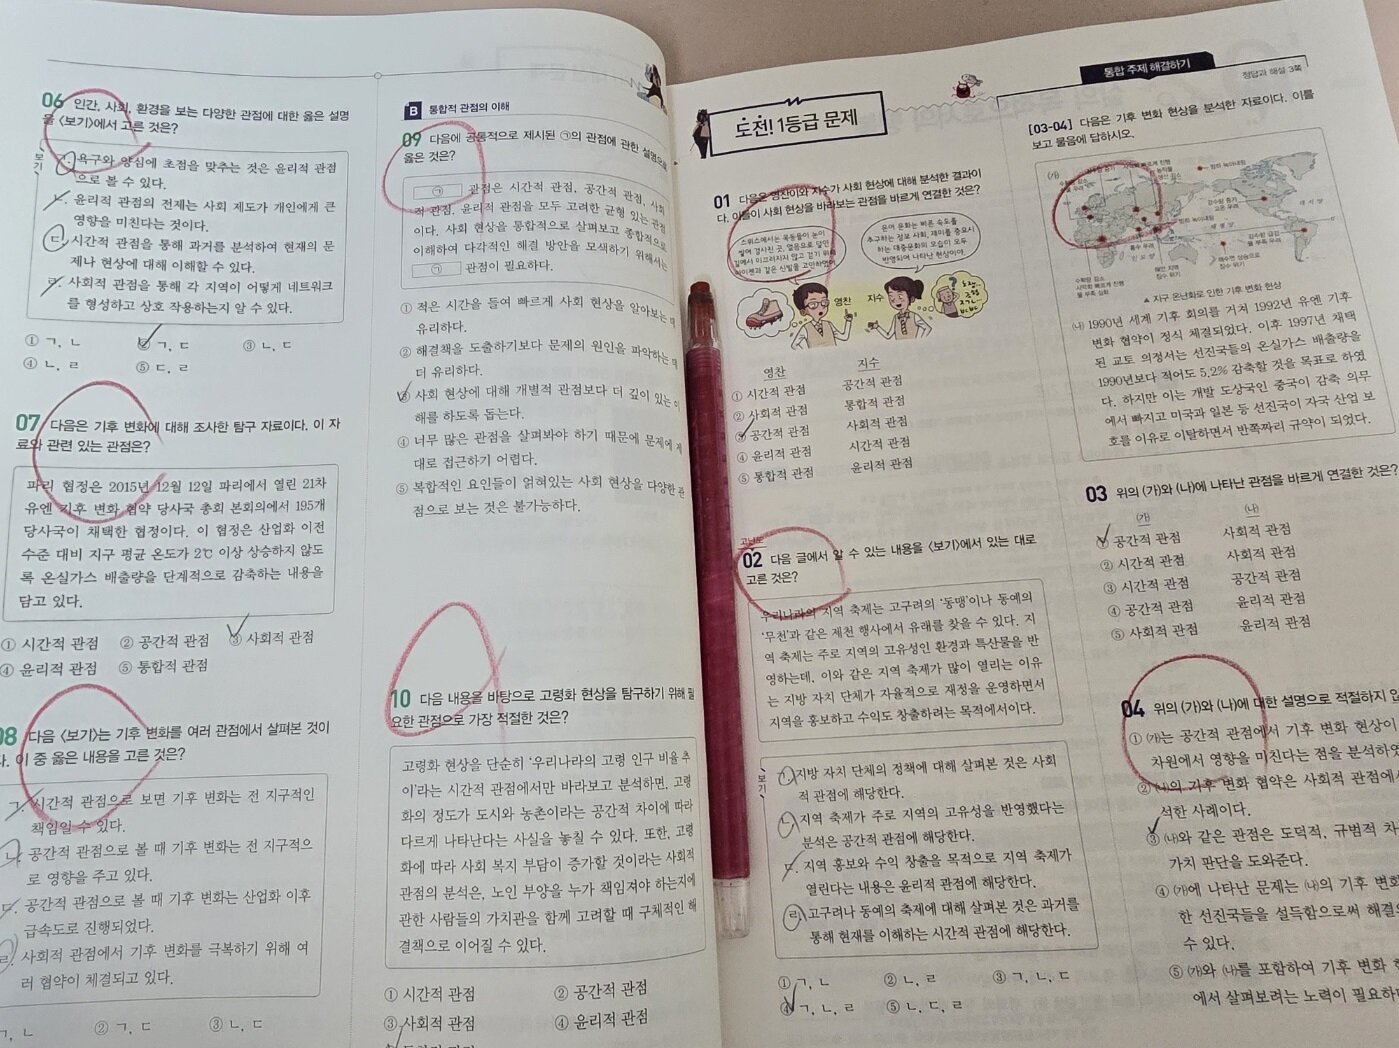 06 인간, 사회, 환경을 보는 다양한 관점에 대한 옳은 설명
을 <보기>에서 고른 것은?
보기
ㄱ. 욕구와 양심에 초점을 맞추는 것은 윤리적 관점
으로 볼 수 있다.
ㄴ. 윤리적 관점의 전제는 사회 제도가 개인에게 큰
영향을 미친다는 것이다.
ㄷ. 시간적 관점을 통해 과거를 분석하여 현재의 문
제나 현상에 대해 이해할 수 있다.
ㄹ. 사회적 관점을 통해 각 지역이 어떻게 네트워크
를 형성하고 상호 작용하는지 알 수 있다.
① ㄱ, ㄴ ② ㄱ, ㄷ ③ ㄴ, ㄷ
④ ㄴ, ㄹ ⑤ ㄷ, ㄹ
07 다음은 기후 변화에 대해 조사한 탐구 자료이다. 이 자
료와 관련 있는 관점은?
파리 협정은 2015년 12월 12일 파리에서 열린 21차
유엔 기후 변화 협약 당사국 총회 본회의에서 195개
당사국이 채택한 협정이다. 이 협정은 산업화 이전
수준 대비 지구 평균 온도가 2℃ 이상 상승하지 않도
록 온실가스 배출량을 단계적으로 감축하는 내용을
담고 있다.
① 시간적 관점 ② 공간적 관점 ③ 사회적 관점
④ 윤리적 관점 ⑤ 통합적 관점
08 다음 <보기>는 기후 변화를 여러 관점에서 살펴본 것이
다. 이 중 옳은 내용을 고른 것은?
ㄱ. 시간적 관점으로 보면 기후 변화는 전 지구적인
책임일 수 있다.
ㄴ. 공간적 관점으로 볼 때 기후 변화는 전 지구적으
로 영향을 주고 있다.
ㄷ. 공간적 관점으로 볼 때 기후 변화는 산업화 이후
급속도로 진행되었다.
ㄹ. 사회적 관점에서 기후 변화를 극복하기 위해 여
러 협약이 체결되고 있다.
ㄱ, ㄴ ② ㄱ, ㄷ ③ ㄴ, ㄷ
B 통합적 관점의 이해
09 다음에 공통적으로 제시된 ㉠의 관점에 관한 설명으로
옳은 것은?
㉠ 관점은 시간적 관점, 공간적 관점, 사회
적 관점, 윤리적 관점을 모두 고려한 균형 있는 관점
이다. 사회 현상을 통합적으로 살펴보고 종합적으로
이해하여 다각적인 해결 방안을 모색하기 위해서는
㉠ 관점이 필요하다.
① 적은 시간을 들여 빠르게 사회 현상을 알아보는 데
유리하다.
② 해결책을 도출하기보다 문제의 원인을 파악하는 데
더 유리하다.
③ 사회 현상에 대해 개별적 관점보다 더 깊이 있는 이
해를 하도록 돕는다.
④ 너무 많은 관점을 살펴봐야 하기 때문에 문제에 제
대로 접근하기 어렵다.
⑤ 복합적인 요인들이 얽혀있는 사회 현상을 다양한 관
점으로 보는 것은 불가능하다.
10 다음 내용을 바탕으로 고령화 현상을 탐구하기 위해 필
요한 관점으로 가장 적절한 것은?
고령화 현상을 단순히 '우리나라의 고령 인구 비율 추
이'라는 시간적 관점에서만 바라보고 분석하면, 고령
화의 정도가 도시와 농촌이라는 공간적 차이에 따라
다르게 나타난다는 사실을 놓칠 수 있다. 또한, 고령
화에 따라 사회 복지 부담이 증가할 것이라는 사회적
관점의 분석은, 노인 부양을 누가 책임져야 하는지에
관한 사람들의 가치관을 함께 고려할 때 구체적인 해
결책으로 이어질 수 있다.
① 시간적 관점 ② 공간적 관점
③ 사회적 관점 ④ 윤리적 관점
도전! 1등급 문제
01 다음은 영찬이와 지수가 사회 현상에 대해 분석한 결과이
다. 이들이 사회 현상을 바라보는 관점을 바르게 연결한 것은?
스위스에서는 목동들이 눈이
쌓여 경사진 곳, 얼음으로 덮인
길에서 미끄러지지 않고 걷기 위해
아이젠과 같은 신발을 고안하였어
은어 문화는 빠른 속도를
추구하는 정보 사회, 재미를 중요시
하는 대중문화의 모습이 모두
반영되어 나타난 현상이야.
영찬 지수
영찬 지수
① 시간적 관점 공간적 관점
② 사회적 관점 통합적 관점
③ 공간적 관점 사회적 관점
④ 윤리적 관점 시간적 관점
⑤ 통합적 관점 윤리적 관점
고난도
02 다음 글에서 알 수 있는 내용을 <보기>에서 있는 대로
고른 것은?
우리나라의 지역 축제는 고구려의 '동맹'이나 동예의
'무천'과 같은 제천 행사에서 유래를 찾을 수 있다. 지
역 축제는 주로 지역의 고유성인 환경과 특산물을 반
영하는데, 이와 같은 지역 축제가 많이 열리는 이유
는 지방 자치 단체가 자율적으로 재정을 운영하면서
지역을 홍보하고 수익도 창출하려는 목적에서이다.
보기
ㄱ. 지방 자치 단체의 정책에 대해 살펴본 것은 사회
적 관점에 해당한다.
ㄴ. 지역 축제가 주로 지역의 고유성을 반영했다는
분석은 공간적 관점에 해당한다.
ㄷ. 지역 홍보와 수익 창출을 목적으로 지역 축제가
열린다는 내용은 윤리적 관점에 해당한다.
ㄹ. 고구려나 동예의 축제에 대해 살펴본 것은 과거를
통해 현재를 이해하는 시간적 관점에 해당한다.
① ㄱ, ㄴ ② ㄴ, ㄹ ③ ㄱ, ㄴ, ㄷ
④ ㄱ, ㄴ, ㄹ ⑤ ㄴ, ㄷ, ㄹ
통합 주제 해결하기
정답과 해설 3쪽
[03-04] 다음은 기후 변화 현상을 분석한 자료이다. 이를
보고 물음에 답하시오.
(가)
▲ 지구 온난화로 인한 기후 변화 현상
(나) 1990년 세계 기후 회의를 거쳐 1992년 유엔 기후
변화 협약이 정식 체결되었다. 이후 1997년 채택
된 교토 의정서는 선진국들의 온실가스 배출량을
1990년보다 적어도 5.2% 감축할 것을 목표로 하였
다. 하지만 이는 개발 도상국인 중국이 감축 의무
에서 빠지고 미국과 일본 등 선진국이 자국 산업 보
호를 이유로 이탈하면서 반쪽짜리 규약이 되었다.
03 위의 (가)와 (나)에 나타난 관점을 바르게 연결한 것은?
(가) (나)
① 공간적 관점 사회적 관점
② 시간적 관점 사회적 관점
③ 시간적 관점 공간적 관점
④ 공간적 관점 윤리적 관점
⑤ 사회적 관점 윤리적 관점
04 위의 (가)와 (나)에 대한 설명으로 적절하지
① (가)는 공간적 관점에서 기후 변화 현상이
차원에서 영향을 미친다는 점을 분석하였
② (나)의 기후 변화 협약은 사회적 관점에서
석한 사례이다.
③ (나)와 같은 관점은 도덕적, 규범적 차
가치 판단을 도와준다.
④ (가)에 나타난 문제는 (나)의 기후 변화
한 선진국들을 설득함으로써 해결
수 있다.
⑤ (가)와 (나)를 포함하여 기후 변화
에서 살펴보려는 노력이 필요하